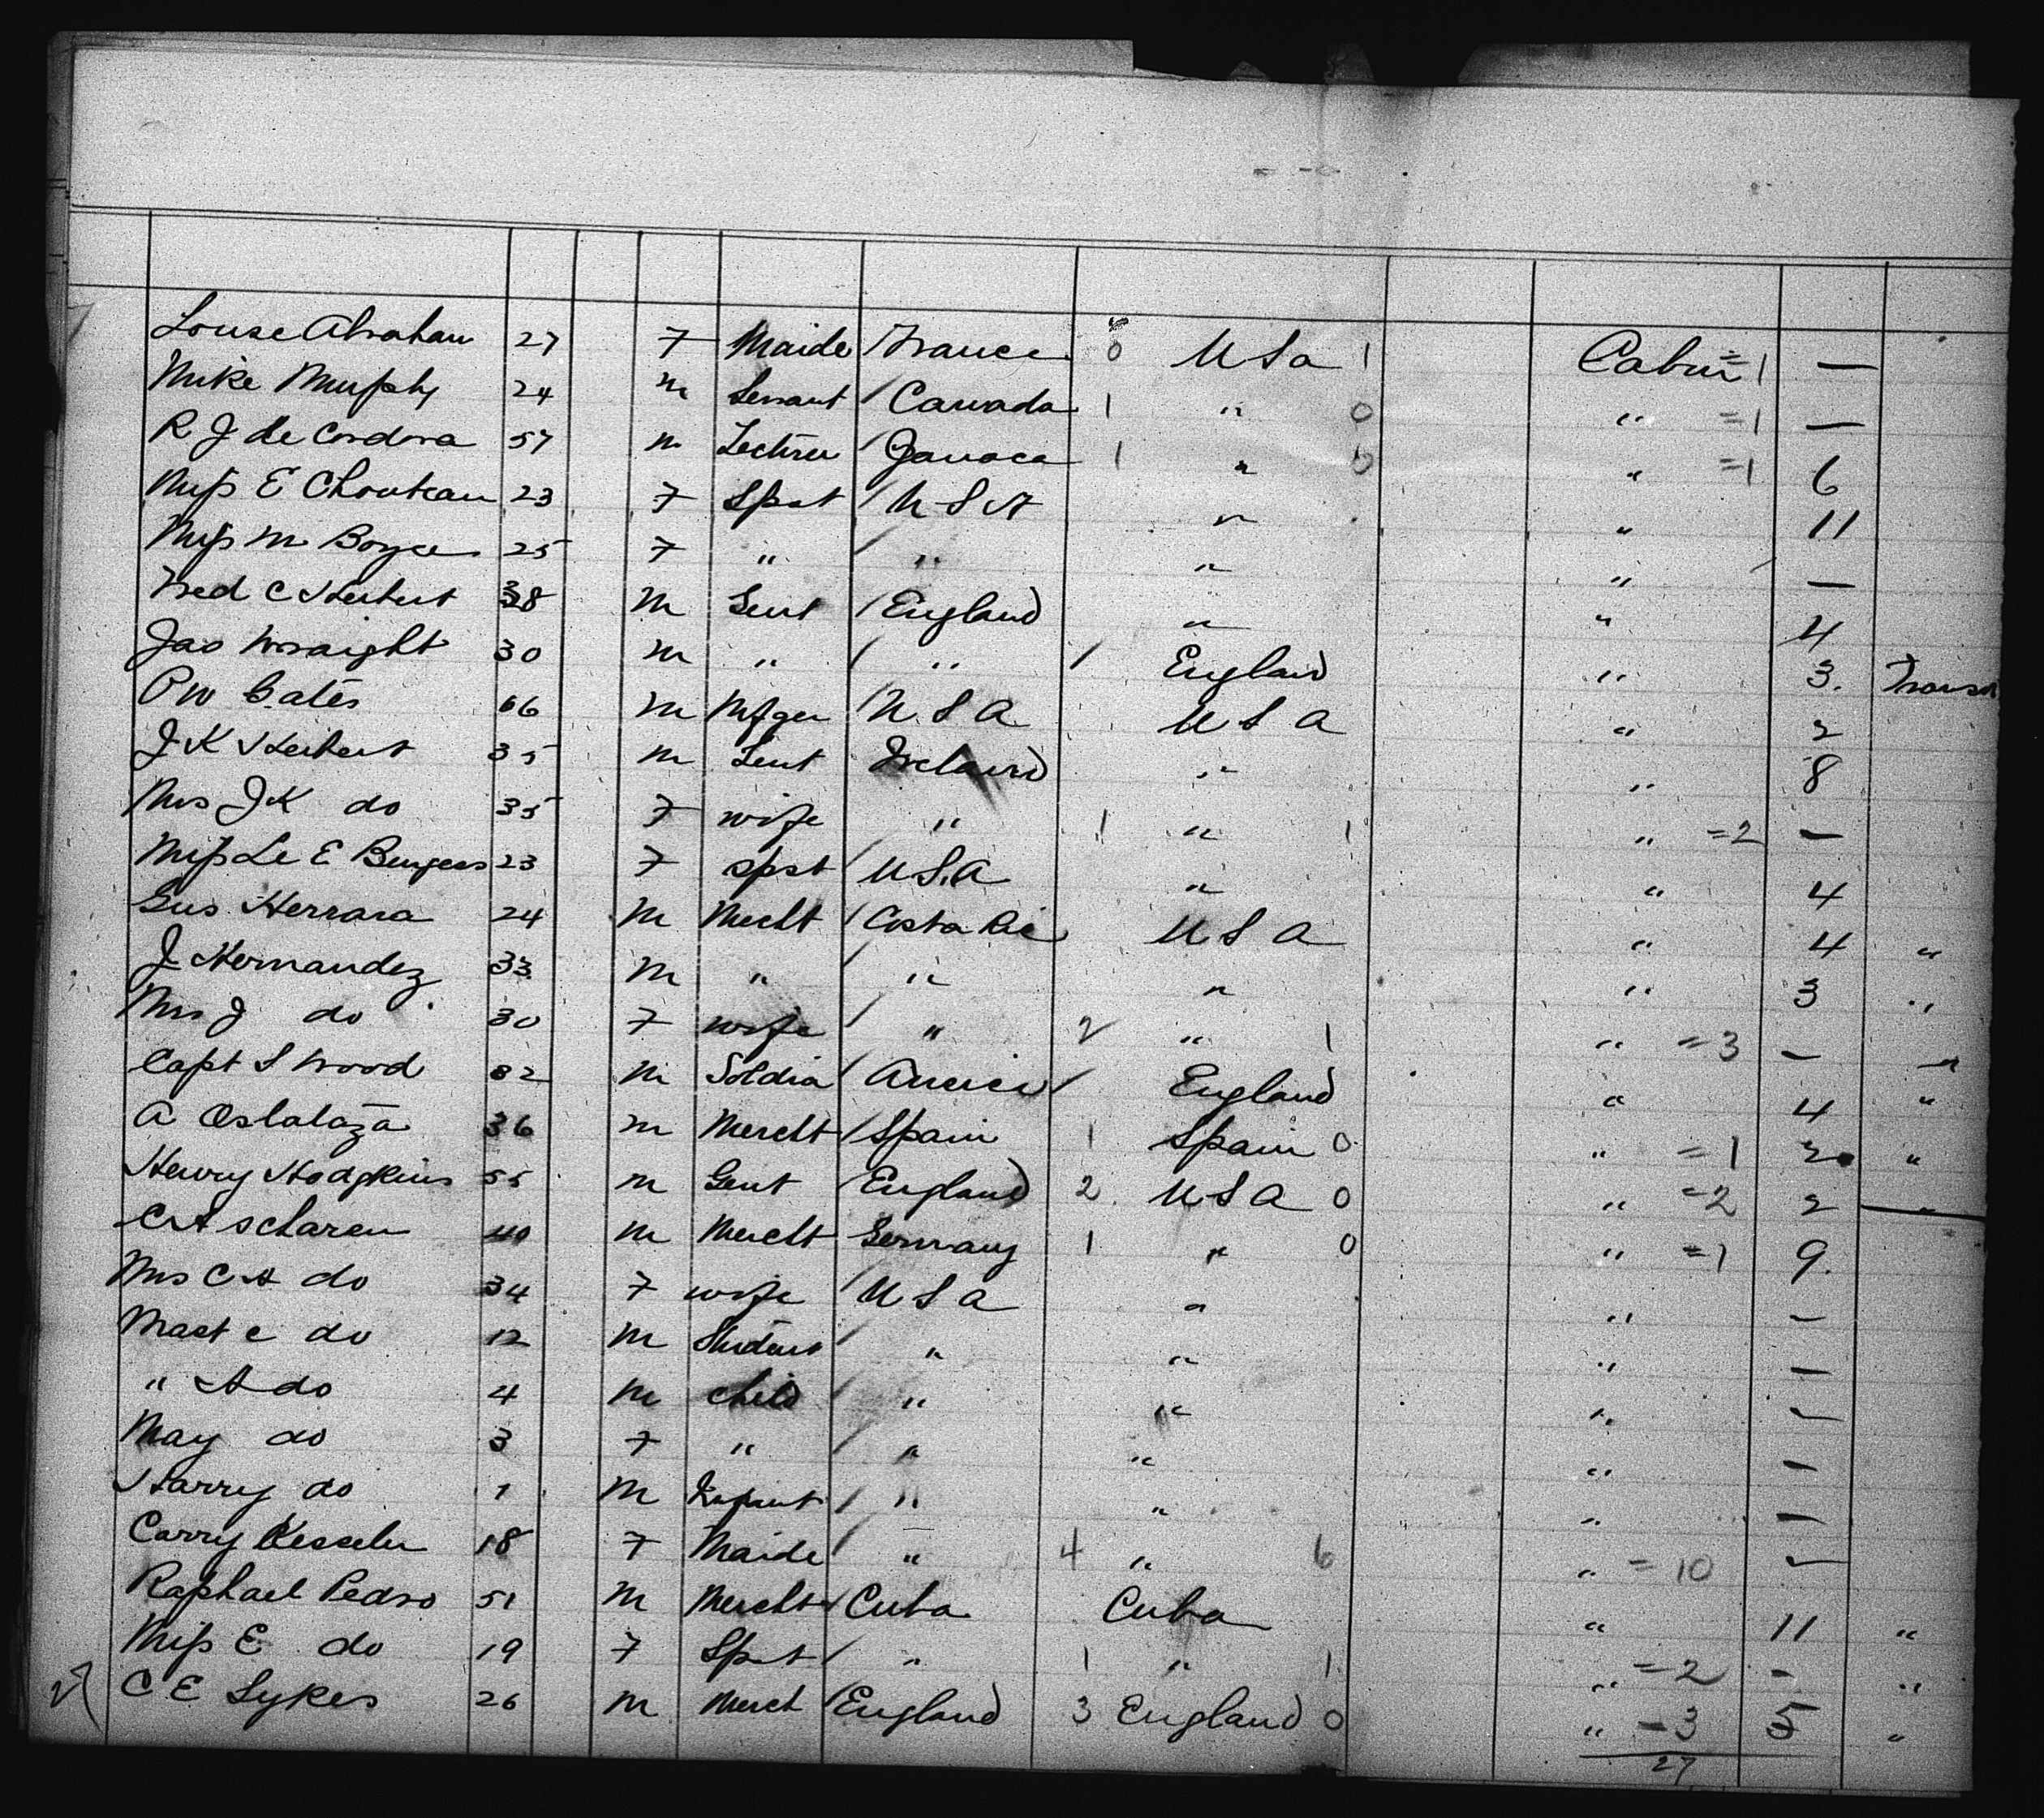 Louise Abraham 27 F Maide France 0 USA 1 Cabin =1 —
Mike Murphy 24 M Servant Canada 1 " 0 " =1 —
R J de Cordova 57 M " 1 " 0 " =1 6
Miss E Chouteau 23 F Spst USA " " 11
Miss M Boyce 25 F " " " " —
Fred C Herbert 38 M Gent England " " 4
Jao Wraight 30 M " " / England " 3.
P W Gates 66 M Mfger USA USA " 2
J K Herbert 35 M Gent Ireland " " 8
Mrs J K do 35 F wife " 1 " 1 " =2 —
Miss Le E Burgess 23 F Spst USA " " 4
Gus Herrara 24 M Mercht Costa Ric USA " 4 "
J Hernandez 33 M " " " " 3 "
Mrs J do 30 F wife " 2 " 1 " =3 — "
Capt S Wood 32 M England " 4 "
A 36 M Mercht Spain 1 Spain 0 " =1 2 "
Henry Hodgkins 55 M Gent England 2 USA 0 " =2 2 "
C A Scharen 40 M Mercht Germany 1 " 0 " =1 9.
Mrs C A do 34 F wife USA " " —
Mast C do 12 M Student " " " —
" A do 4 M child " " " —
May do 3 F " " " " —
Harry do 1 M Infant " " " —
Carry Kesseler 18 F Maide " 4 " 6 " =10 —
Raphael Pedro 51 M Mercht Cuba Cuba " 11 "
Miss E do 19 F Spst " 1 " 1 " =2 - "
C E Sykes 26 M Merch England 3 England 0 " -3 5 "
27